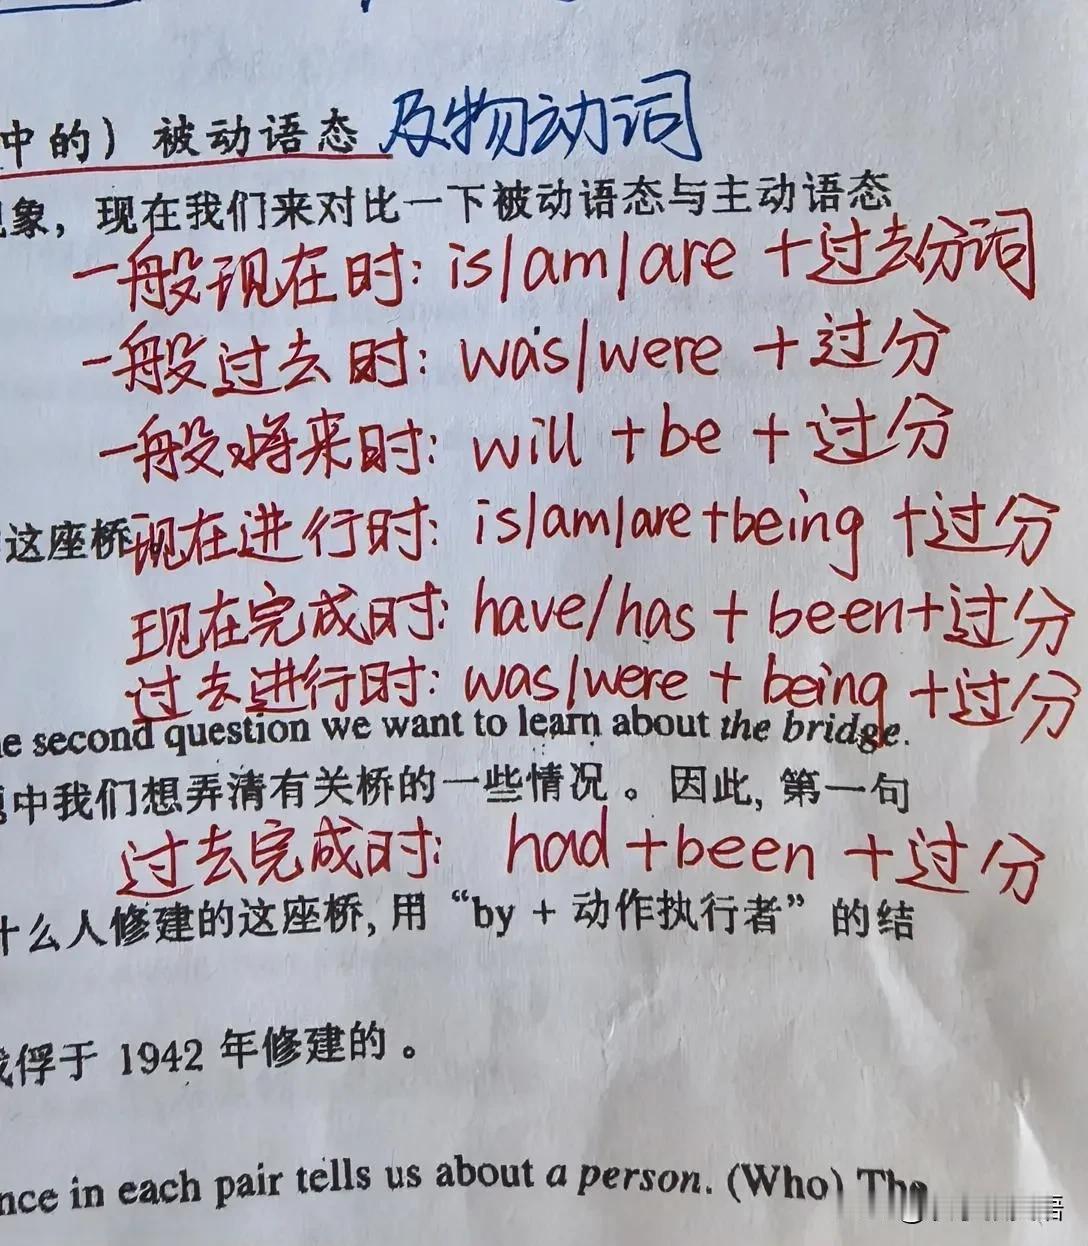 中的）被动语态 及物动词
象，现在我们来对比一下被动语态与主动语态
一般现在时: is/am/are +过去分词
一般过去时: was/were +过分
一般将来时: will +be +过分
这座桥
现在进行时: is/am/are+being +过分
现在完成时: have/has + been+过分
过去进行时: was/were + being +过分
second question we want to learn about the bridge.
中我们想弄清有关桥的一些情况。因此, 第一句
过去完成时: had +been +过分
什么人修建的这座桥, 用 “by + 动作执行者” 的结
俘于 1942 年修建的。
nce in each pair tells us about a person. (Who) The